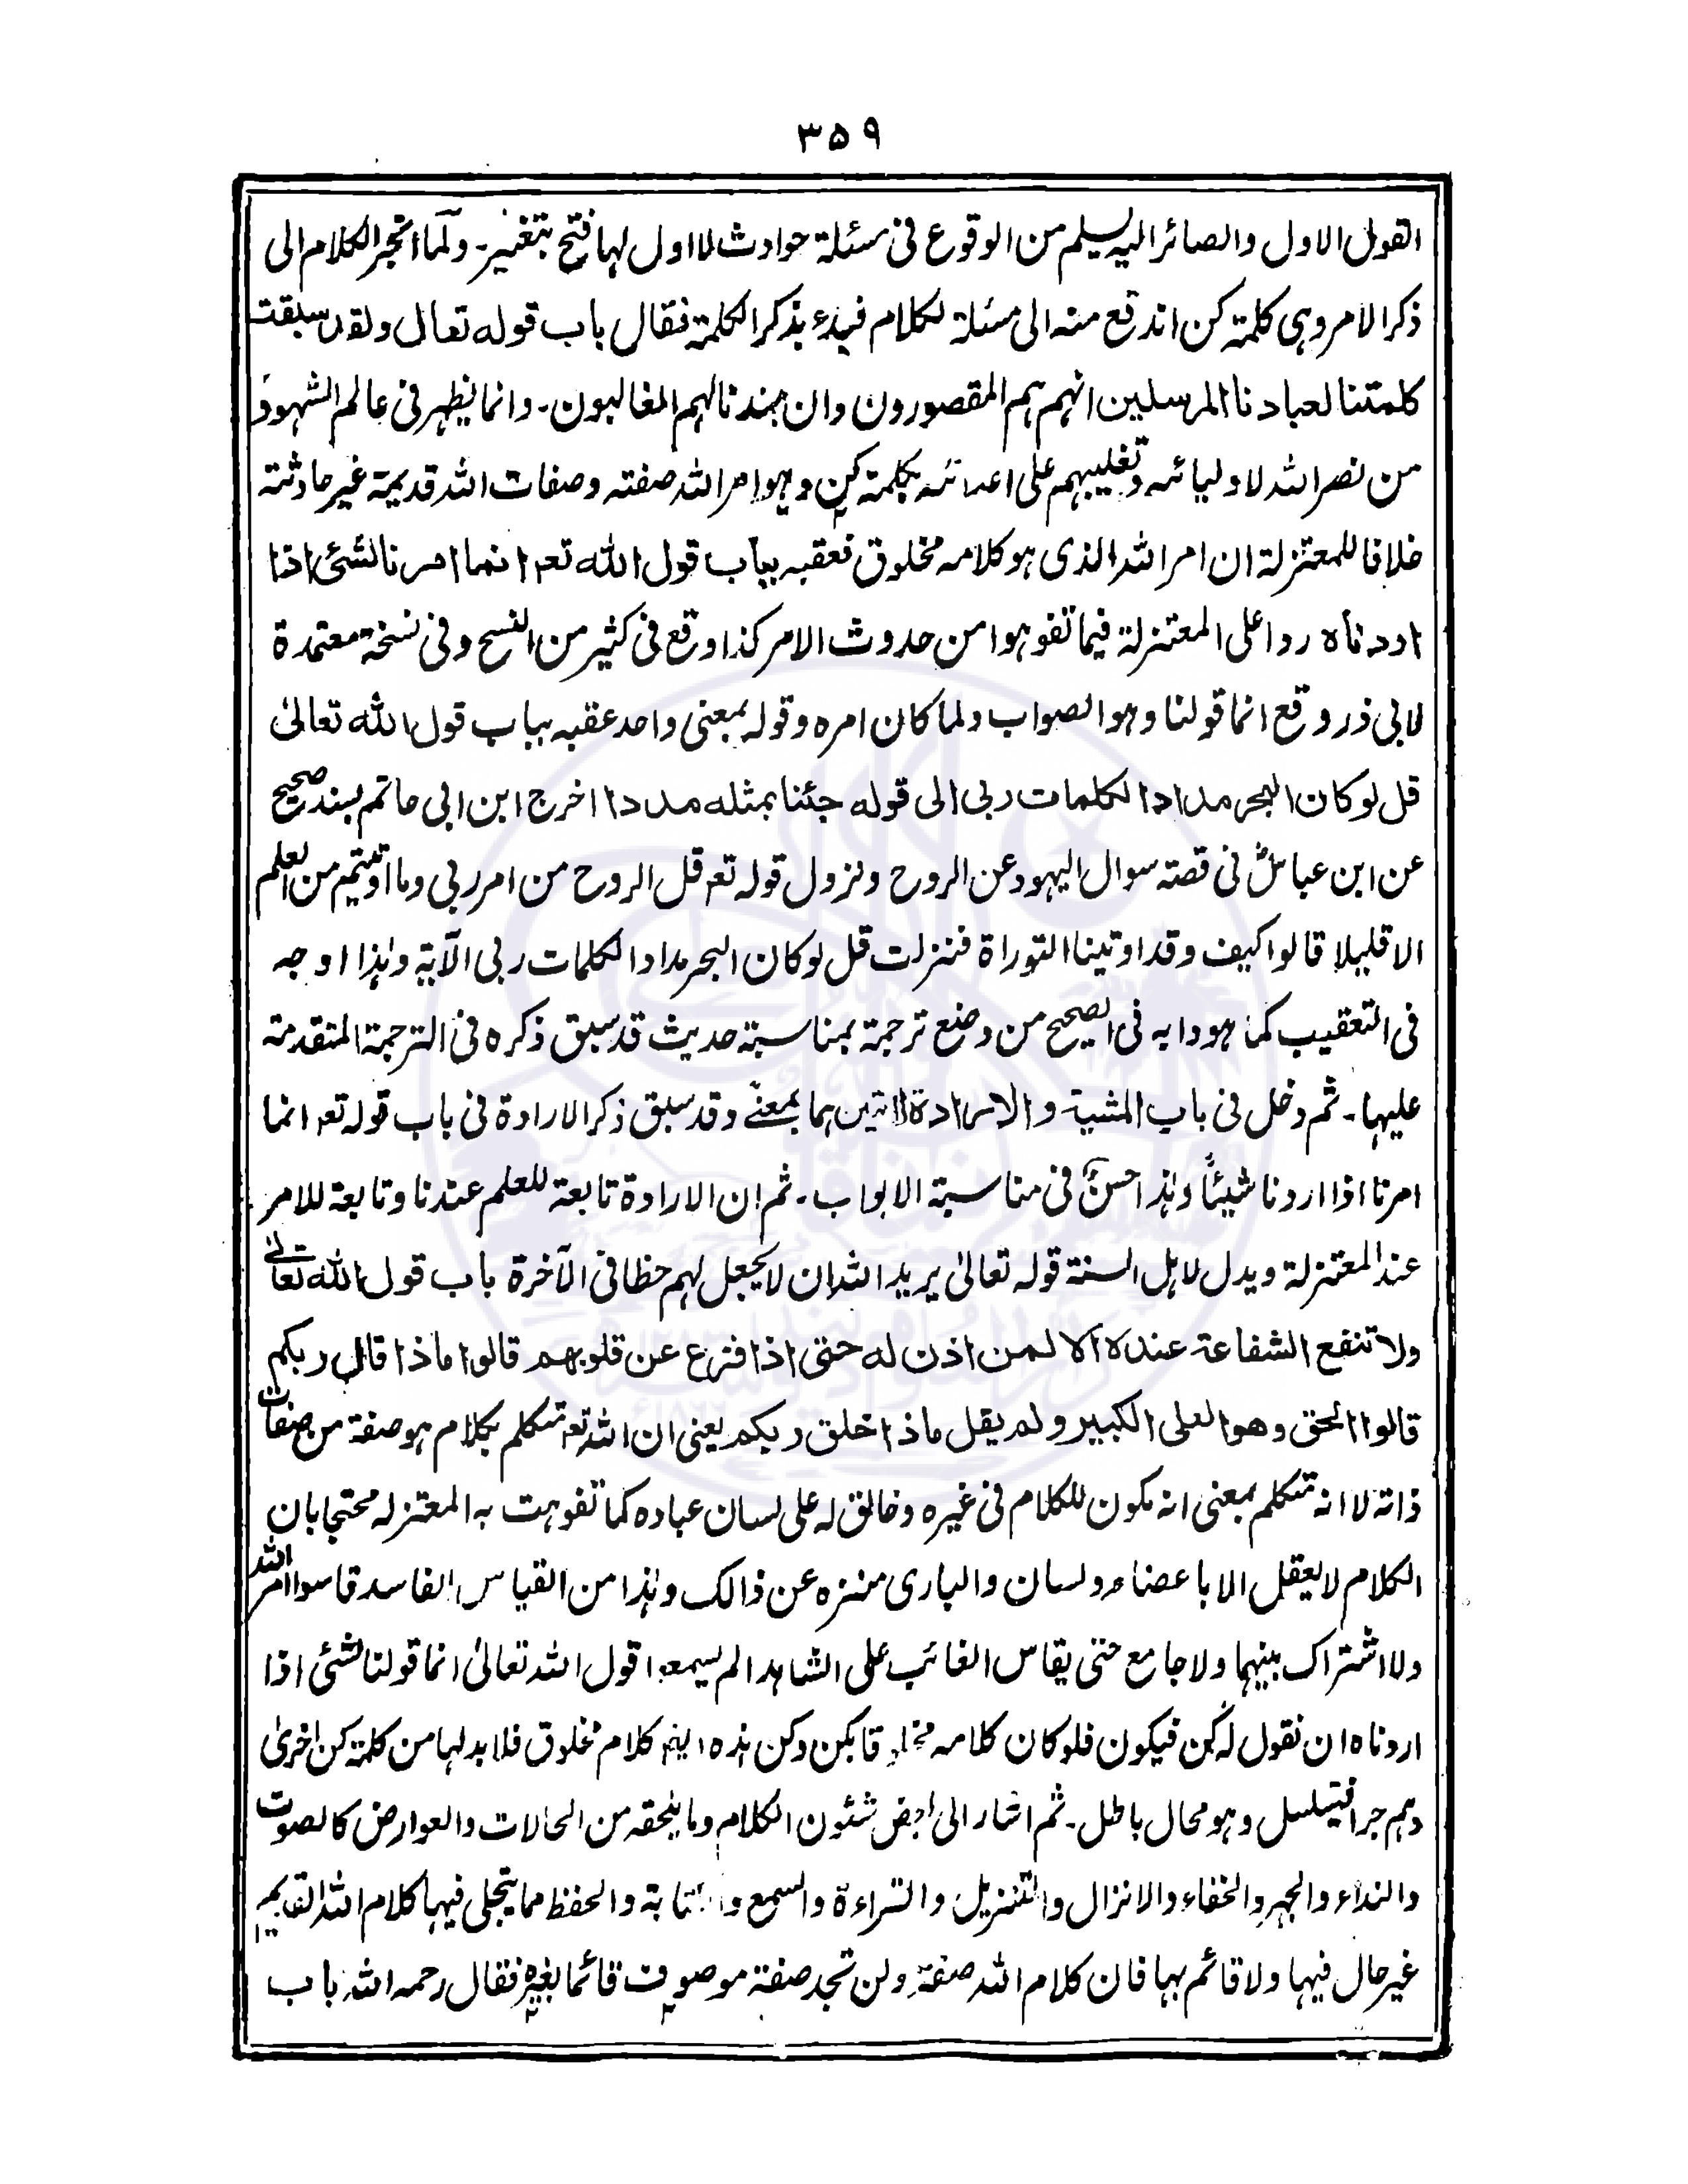 ۳۵۹
القول الاول والصائر اليه يسلم من الوقوع فى مسئلة حوادث لا اول لها فتح بتغيير۔ ولما انجر الكلام الى
ذكر الامر وهى كلمة كن اندفع منه الى مسئلة الكلام فبدء بذكر الكلمة فقال باب قوله تعالى ولقد سبقت
كلمتنا لعبادنا المرسلين انهم هم المقصورون وان جندنا لهم الغالبون۔ وانما يظهر فى عالم الشهود
من نصر الله لاوليائه وتغليبهم على اعدائه بكلمة كن وهو امر الله صفته وصفات الله قديمة غير حادثة
خلافا للمعتزلة ان امر الله الذى هو كلامه مخلوق فعقبه بباب قول الله تعم انما امرنا لشئ اذا
اردناه ردا على المعتزلة فيما تفوهوا من حدوث الامر كذا وقع فى كثير من النسخ وفى نسخة معتمدة
لابى ذر وقع انما قولنا وهو الصواب ولما كان امره وقوله بمعنى واحد عقبه بباب قول الله تعالىٰ
قل لو كان البحر مدادا لكلمات ربى الى قوله جئنا بمثله مددا اخرج ابن ابى حاتم بسند صحيح
عن ابن عباسؓ فى قصة سوال اليهود عن الروح ونزول قوله تعم قل الروح من امر ربى وما اوتيتم من العلم
الا قليلا قالوا كيف وقد اوتينا التوراة فنزلت قل لو كان البحر مدادا لكلمات ربى الآية وهٰذا اوجه
فى التعقيب كما هو دابه فى الصحيح من وضع ترجمة بمناسبة حديث قد سبق ذكره فى الترجمة المتقدمة
عليها۔ ثم دخل فى باب المشية والارادة اللاتين هما بمعنى وقد سبق ذكر الارادة فى باب قوله تعم انما
امرنا اذا اردنا شيئاً وهٰذا حسنٌ فى مناسبة الابواب۔ ثم ان الارادة تابعة للعلم عندنا وتابعة للامر
عند المعتزلة ويدل لاهل السنة قوله تعالىٰ يريد الله ان لا يجعل لهم حظا فى الآخرة باب قول الله تعالىٰ
ولا تنفع الشفاعة عنده الا لمن اذن له حتى اذا فزع عن قلوبهم قالوا ماذا قال ربكم
قالوا الحق وهو العلى الكبير ولم يقل ماذا خلق ربكم يعنى ان الله تعم متكلم بكلام هو صفة من صفات
ذاته لا انه متكلم بمعنى انه مكون للكلام فى غيره وخالق له على لسان عباده كما تفوهت به المعتزله محتجا بان
الكلام لا يعقل الا باعضاء ولسان والبارى منزه عن ذالك وهٰذا من القياس الفاسد قاسوا امر الله
ولا اشتراك بينهما ولا جامع حتى يقاس الغائب على الشاهد الم يسمعوا قول الله تعالىٰ انما قولنا لشئ اذا
اردناه ان نقول له كن فيكون فلو كان كلامه مخلوقا بكن وكن هذه ايضا كلام مخلوق فلا بد لها من كلمة كن اخرىٰ
وهم جرا فيتسلسل وهو محال باطل۔ ثم اشار الى بعض شئون الكلام وما يلحقه من الحالات والعوارض كالصوت
والنداء والجهر والخفاء والانزال والتنزيل والقراءة والسمع والكتابة والحفظ مما يتجلى فيها كلام الله القديم
غير حال فيها ولا قائم بها فان كلام الله صفة ولن تجد صفة موصوف قائما بغيره فقال رحمه الله باب